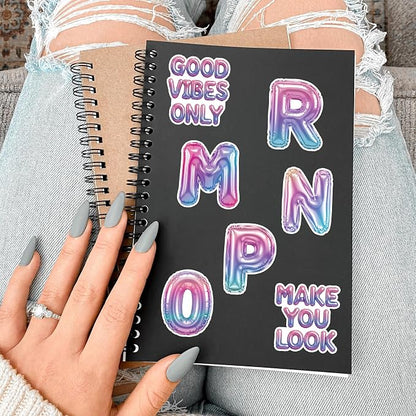 GOOD
VIBES
ONLY
R
M
N
P
O
MAKE
YOU
LOOK